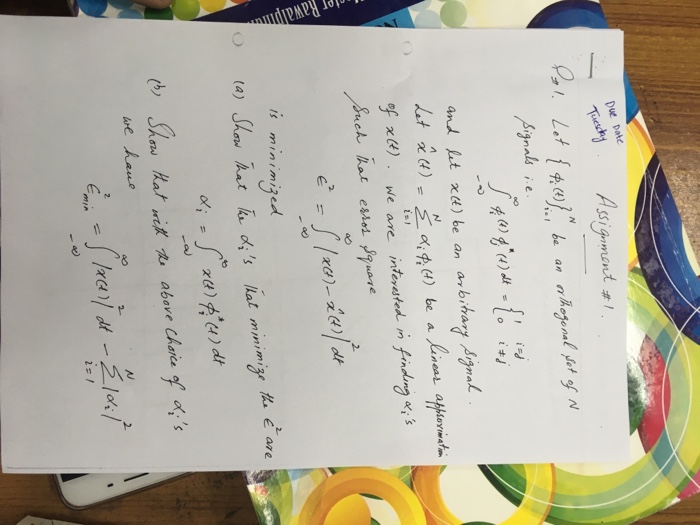 Due Date
Tuesday.
Assignment #1.
P#1. Let {φᵢ(t)}ᵢ₌₁ᴺ be an orthogonal set of N
signals i.e.
∫_{-∞}^{∞} φᵢ(t) φⱼ*(t) dt = { 1 i=j
0 i≠j
and let x(t) be an arbitrary signal.
Let x̂(t) = Σ_{i=1}^{N} αᵢ φᵢ(t) be a linear approximation
of x(t). We are interested in finding αᵢ's
Such that error square
ϵ² = ∫_{-∞}^{∞} |x(t) - x̂(t)|² dt
is minimized
(a) Show that the αᵢ's that minimize the ϵ² are
αᵢ = ∫_{-∞}^{∞} x(t) φᵢ*(t) dt
(b) Show that with the above choice of αᵢ's
we have
ϵ²min = ∫_{-∞}^{∞} |x(t)|² dt - Σ_{i=1}^{N} |αᵢ|²